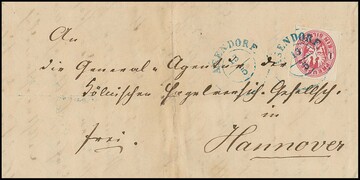 An
die General-Agentur der
Kölnischen Hagelversich.-Gesellsch.
in
frei.
Hannover